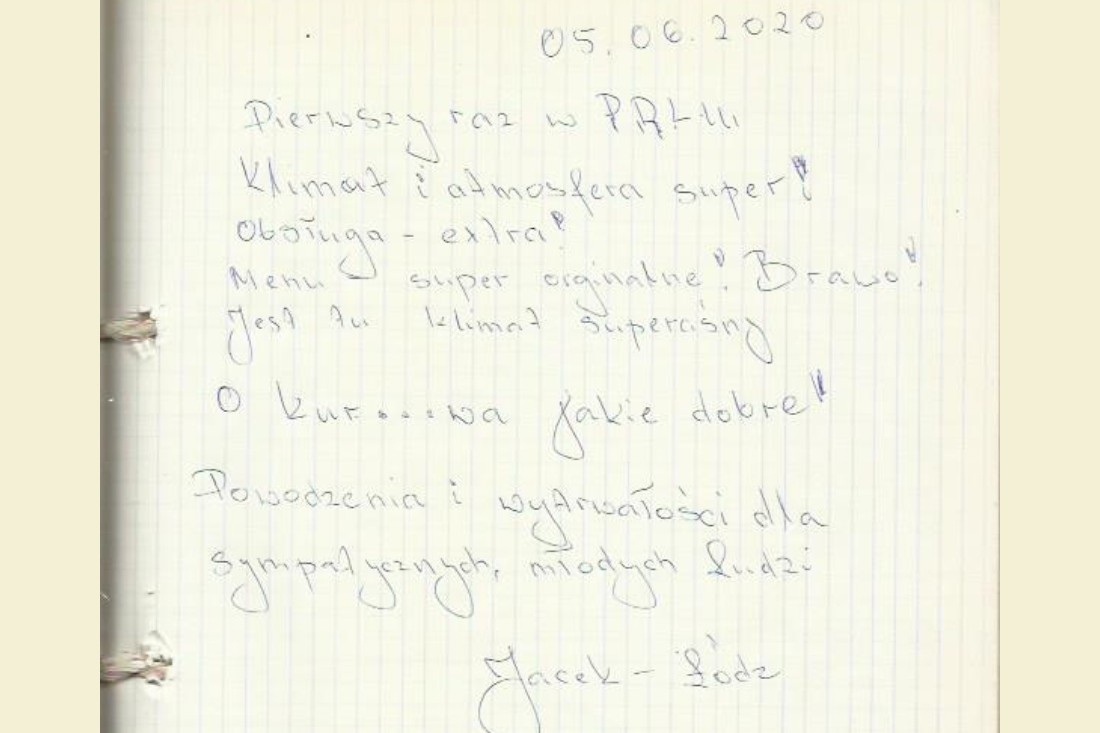 05.06.2020
Pierwszy raz w PRL-u.
Klimat i atmosfera super!
Obsługa - extra!
Menu super orginalne! Brawo!
Jest tu klimat superaśny
O kur....wa jakie dobre!
Powodzenia i wytrwałości dla
sympatycznych, młodych ludzi
Jacek - Łódz